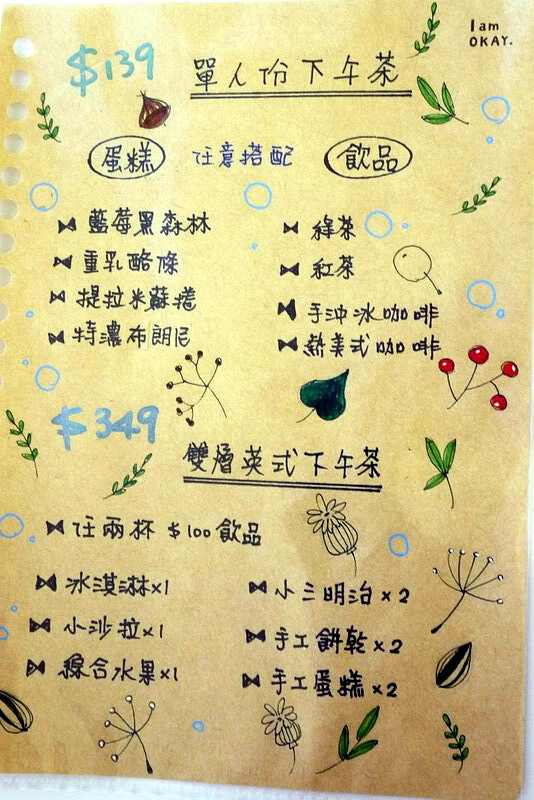 I am
OKAY.
$139 單人份下午茶
蛋糕 任意搭配 飲品
藍莓黑森林 綠茶
重乳酪條 紅茶
提拉米蘇捲 手沖冰咖啡
特濃布朗尼 熱美式咖啡
$349
雙層英式下午茶
任兩杯 $100飲品
冰淇淋x1 小三明治x2
小沙拉x1 手工餅乾x2
綜合水果x1 手工蛋糕x2